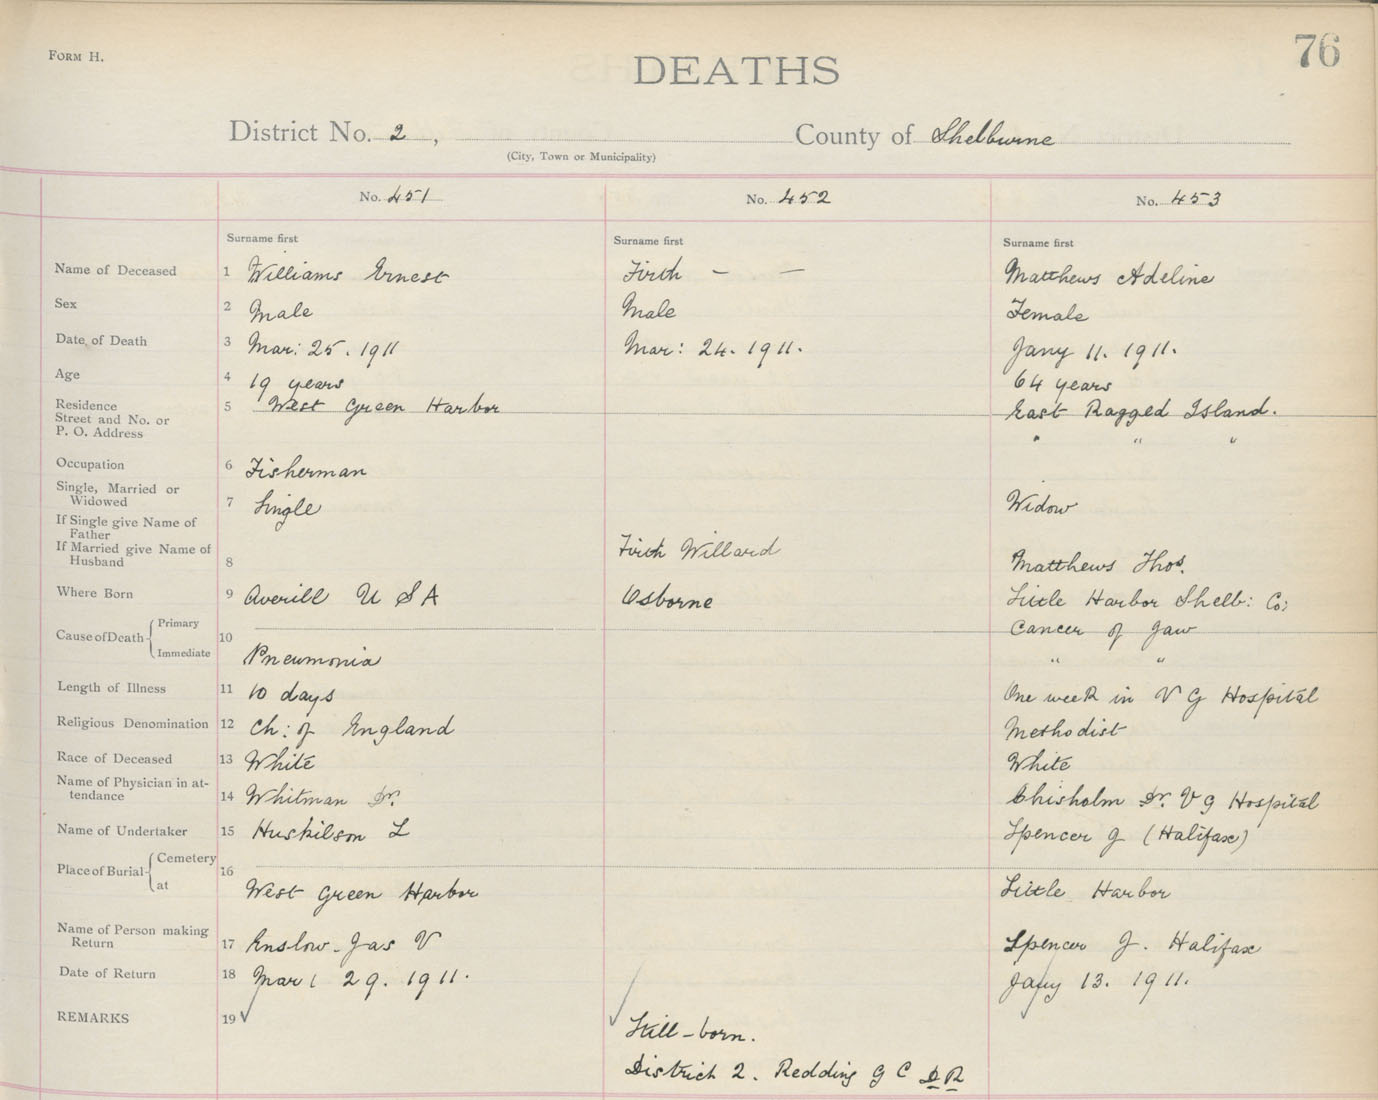 FORM H.
DEATHS
76
District No. 2, County of Shelburne
(City, Town or Municipality)
No. 451 No. 452 No. 453
Surname first Surname first Surname first
Name of Deceased 1 Williams Ernest Firth — — Matthews Adeline
Sex 2 Male Male Female
Date of Death 3 Mar: 25. 1911 Mar: 24. 1911. Jany 11. 1911.
Age 4 19 years 64 years
Residence
Street and No. or
P. O. Address
5 West Green Harbor East Ragged Island.
" " "
Occupation 6 Fisherman
Single, Married or
Widowed 7 Single Widow
If Single give Name of
Father
If Married give Name of
Husband 8 Firth Willard Matthews Thos.
Where Born 9 Averill U S A Osborne Little Harbor Shelb: Co:
Cause of Death Primary 10 Cancer of Jaw
Immediate Pneumonia " "
Length of Illness 11 10 days One week in V G Hospital
Religious Denomination 12 Ch: of England Methodist
Race of Deceased 13 White White
Name of Physician in at-
tendance 14 Whitman Dr. Chisholm Dr. V G Hospital
Name of Undertaker 15 Huskilson L Spencer J (Halifax)
Place of Burial Cemetery 16
at West Green Harbor Little Harbor
Name of Person making
Return 17 Enslow. Jas V Spencer J. Halifax
Date of Return 18 Mar: 29. 1911. Jany 13. 1911.
REMARKS 19
Still-born.
District 2. Redding G C D R